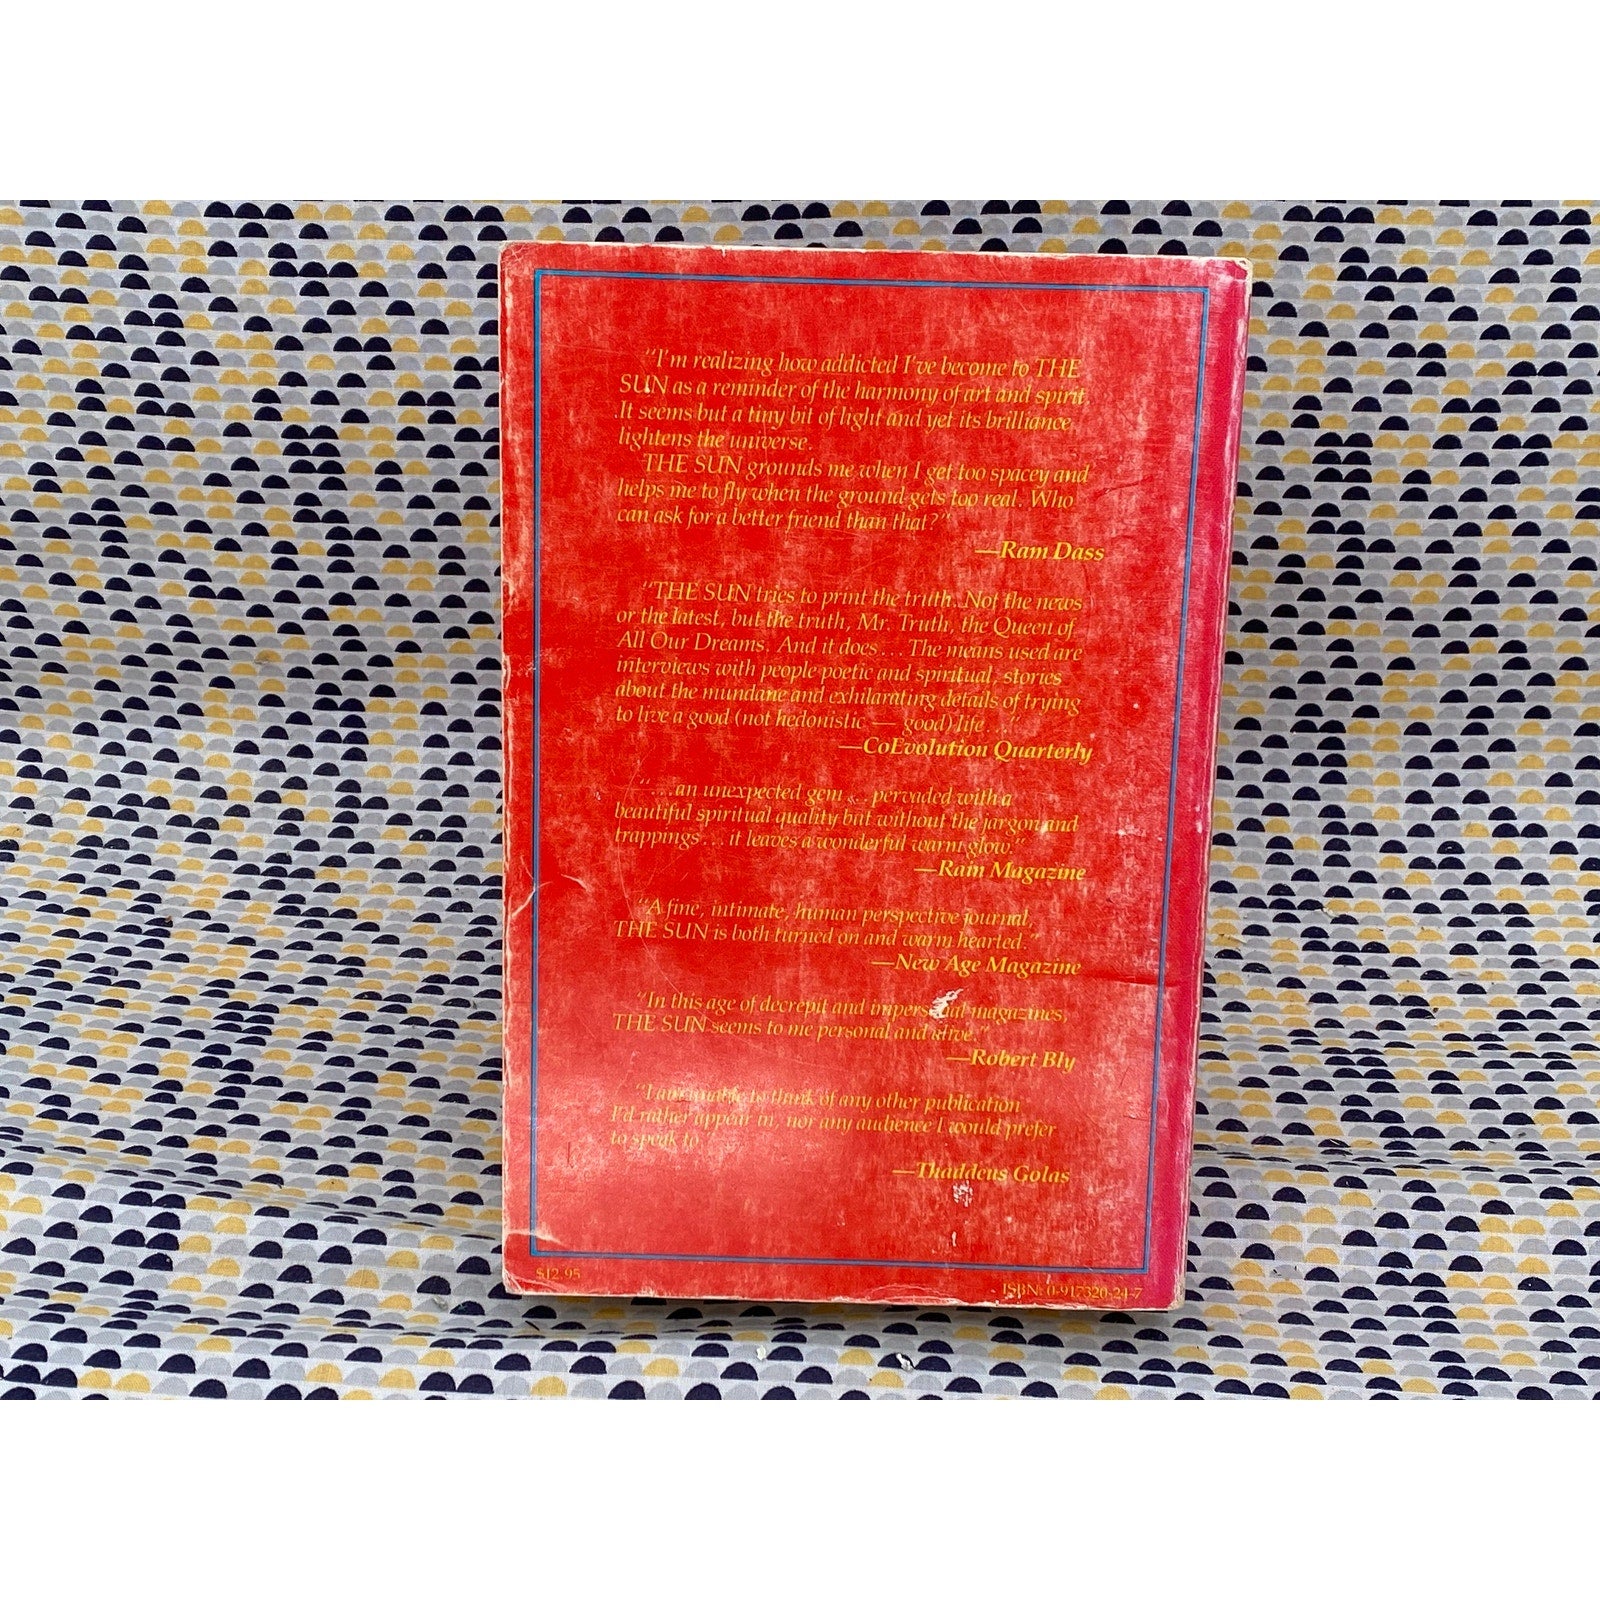 "I'm realizing how addicted I've become to THE
SUN as a reminder of the harmony of art and spirit.
.It seems but a tiny bit of light and yet its brilliance
lightens the universe.
THE SUN grounds me when I get too spacey and
helps me to fly when the ground gets too real. Who
can ask for a better friend than that?"
—Ram Dass
"THE SUN tries to print the truth. Not the news
or the latest, but the truth, Mr. Truth, the Queen of
All Our Dreams. And it does ... The means used are
interviews with people poetic and spiritual, stories
about the mundane and exhilarating details of trying
to live a good (not hedonistic — good) life ..."
—CoEvolution Quarterly
"...an unexpected gem ... pervaded with a
beautiful spiritual quality but without the jargon and
trappings ... it leaves a wonderful warm glow."
—Rain Magazine
"A fine, intimate, human perspective journal,
THE SUN is both turned on and warm hearted."
—New Age Magazine
"In this age of decrepit and impersonal magazines,
THE SUN seems to me personal and alive."
—Robert Bly
"I am unable to think of any other publication
I'd rather appear in, nor any audience I would prefer
to speak to."
—Thaddeus Golas
$12.95
ISBN: 0-917320-24-7